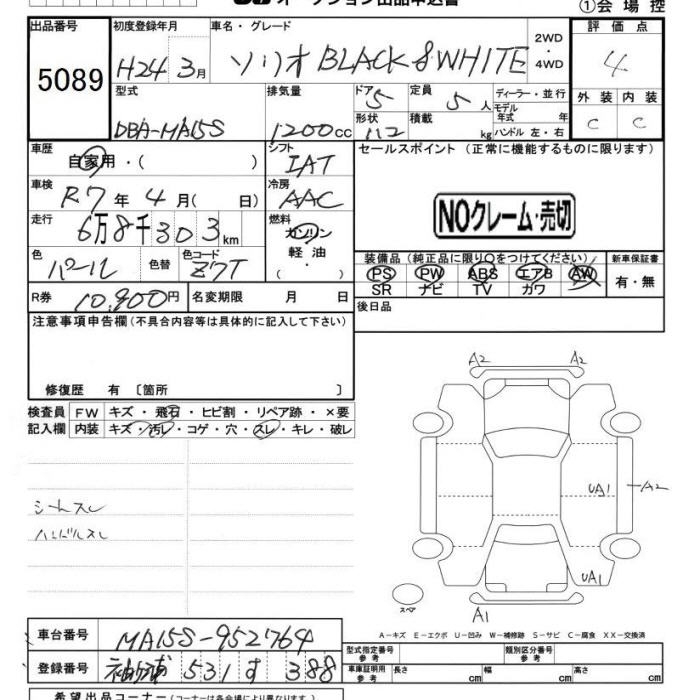 オークション出品申込書
①会場控
出品番号 初度登録年月 車名・グレード 2WD ・ 4WD 評価点
5089 H24 3月 ソリオ BLACK & WHITE 4
型式 排気量 ドア 定員 ディーラー・並行 外装 内装
5 5人 モデル年式 年
DBA-MA15S 1200cc 形状 積載 kg ハンドル 左・右 C C
車歴 シフト セールスポイント (正常に機能するものに限ります)
自家用・( ) IAT
車検 冷房
R7年4月( 日) AAC NOクレーム・売切
走行 燃料
6万8千303km ガソリン
色 色替 色コード 軽油・ 装備品(純正品に限り○をつけてください) 新車保証書
パール Z7T ・( ) PS PW ABS エアB AW 有・無
SR ナビ TV カワ
R券 10,900円 名変期限 月 日 後日品
注意事項申告欄(不具合内容等は具体的に記入して下さい)
修復歴 有 〔箇所 〕
検査員 FW キズ・飛石・ヒビ割・リペア跡・×要
記入欄 内装 キズ・汚レ・コゲ・穴・スレ・キレ・破レ
A2 A2
UA1 A2
シートスレ
ハンドルスレ
UA1
スペア A1
A-キズ E-エクボ U-凹み W-補修跡 S-サビ C-腐食 XX-交換済
車台番号 MA15S-952764
型式指定番号 参考 類別区分番号 参考
登録番号 袖ヶ浦 531 す 388
車庫証明用 参考 長さ cm 幅 cm 高さ cm
希望出品コーナー(コーナーは各会場により異なります)